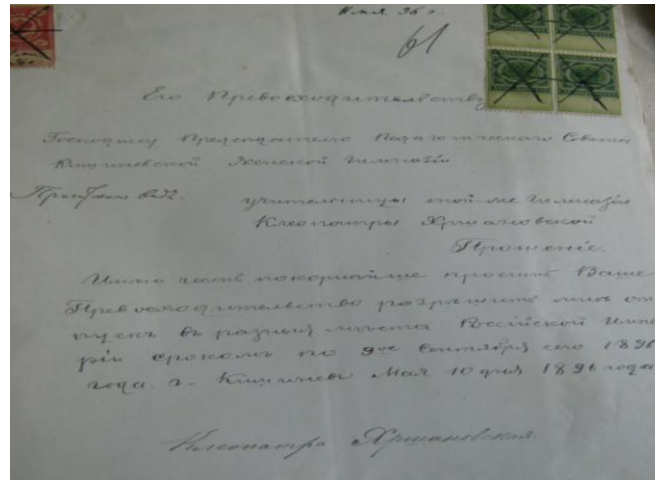 мая 96 г.
61
Его Превосходительству
Господину Председателю Педагогическаго Совета
Кишиневской Женской Гимназіи
учительницы той-же Гимназіи
Клеопатры Хршановской
Прошеніе.
Имею честь покорнѣйше просить Ваше
Превосходительство разрѣшить мнѣ от
пускъ въ разныя мѣста Россійской Импе
ріи срокомъ по 9ое Сентября сего 1896
года. г. Кишиневъ Мая 10 дня 1896 года
Клеопатра Хршановская.